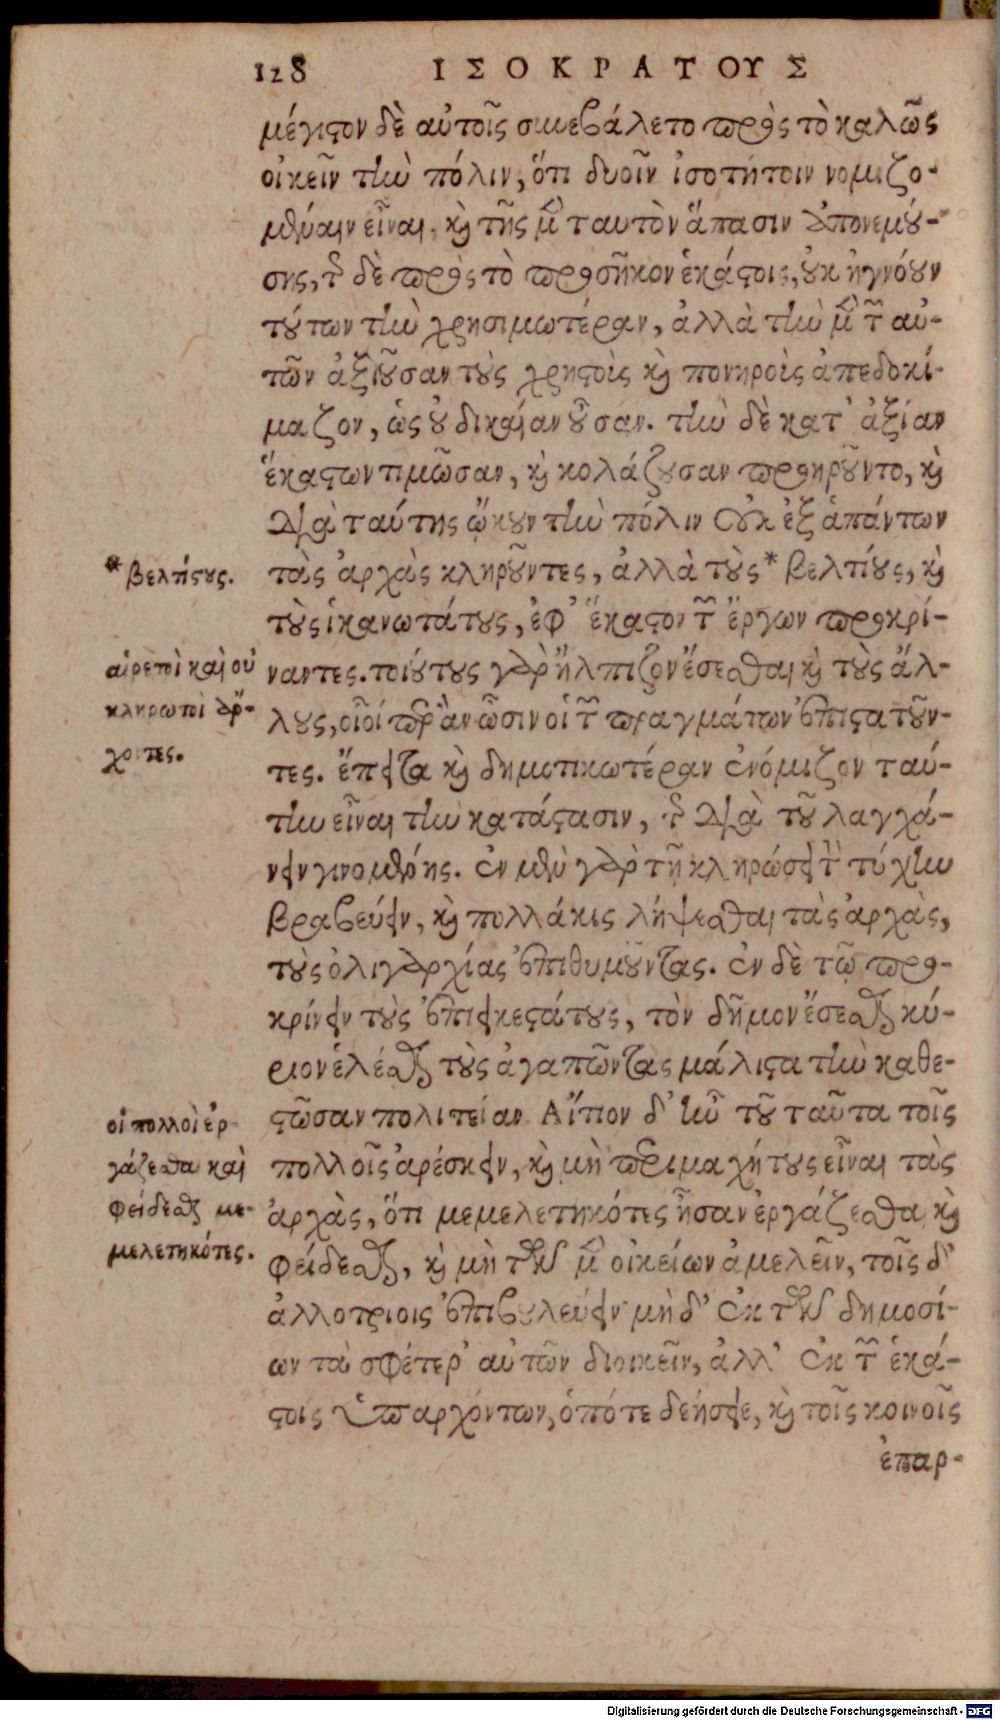 128 ΙΣΟΚΡΑΤΟΥΣ
μέγιστον δὲ αὐτοῖς συνεβάλετο πρὸς τὸ καλῶς
οἰκεῖν τὴν πόλιν, ὅτι δυοῖν ἰσοτήτοιν νομιζο-
μέναιν εἶναι, καὶ τῆς μὲν ταυτὸν ἅπασιν ἀπονεμού-
σης, τῆς δὲ πρὸς τὸ προσῆκον ἑκάστοις, οὐκ ἠγνόουν
τούτων τὴν χρησιμωτέραν, ἀλλὰ τὴν μὲν τῶν αὐ-
τῶν ἀξιοῦσαν τοὺς χρηστοὺς καὶ πονηροὺς ἀπεδοκί-
μαζον, ὡς οὐ δικαίαν οὖσαν. τὴν δὲ κατ' ἀξίαν
ἕκαστων τιμῶσαν, καὶ κολάζουσαν προῃροῦντο, καὶ
διὰ ταύτης ᾤκουν τὴν πόλιν οὐκ ἐξ ἁπάντων
τὰς ἀρχὰς κληροῦντες, ἀλλὰ τοὺς * βελτίους, καὶ
τοὺς ἱκανωτάτους, ἐφ' ἕκαστον τῶν ἔργων προκρί-
ναντες. τοιούτους γὰρ ἤλπιζον ἔσεσθαι καὶ τοὺς ἄλ-
λους, οἷοί περ ἂν ὦσιν οἱ τῶν πραγμάτων ἐπιστατοῦν-
τες. ἔπειτα καὶ δημοτικωτέραν ἐνόμιζον ταύ-
την εἶναι τὴν κατάστασιν, τῆς διὰ τοῦ λαγχά-
νειν γινομένης. ἐν μὲν γὰρ τῇ κληρώσει τὴν τύχην
βραβεύειν, καὶ πολλάκις λήψεσθαι τὰς ἀρχὰς,
τοὺς ὀλιγαρχίας ἐπιθυμοῦντας. ἐν δὲ τῷ προ-
κρίνειν τοὺς ἐπιεικεστάτους, τὸν δῆμον ἔσεσθαι κύ-
ριον ἑλέσθαι τοὺς ἀγαπῶντας μάλιστα τὴν καθε-
στῶσαν πολιτείαν. Αἴτιον δ' ἦν τοῦ ταῦτα τοῖς
πολλοῖς ἀρέσκειν, καὶ μὴ περιμαχήτους εἶναι τὰς
ἀρχὰς, ὅτι μεμελετηκότες ἦσαν ἐργάζεσθαι καὶ
φείδεσθαι, καὶ μὴ τῶν μὲν οἰκείων ἀμελεῖν, τοῖς δ'
ἀλλοτρίοις ἐπιβουλεύειν μὴ δ' ἐκ τῶν δημοσί-
ων τὰ σφέτερ' αὐτῶν διοικεῖν, ἀλλ' ἐκ τῶν ἑκά-
στοις ὑπαρχόντων, ὁπότε δεήσειε, καὶ τοῖς κοινοῖς
ἐπαρ-
* βελτίστους.
αἱρετοὶ καὶ οὐ
κληρωτοὶ ἄρ-
χοντες.
οἱ πολλοὶ ἐρ-
γάζεσθαι καὶ
φείδεσθαι με-
μελετηκότες.
Digitalisierung gefördert durch die Deutsche Forschungsgemeinschaft - DFG